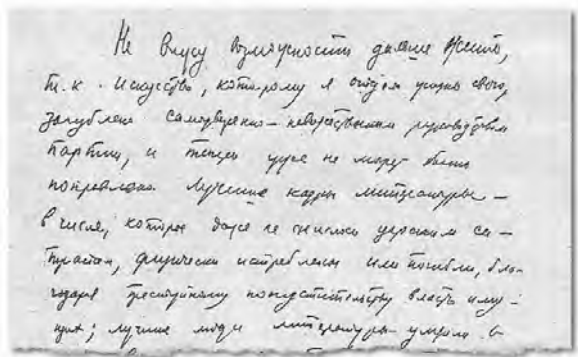 Не вижу возможности дальше жить,
т.к. искусство, которому я отдал жизнь свою,
загублено самоуверенно-невежественным руководством
партии, и теперь уже не может быть
поправлено. Лучшие кадры литературы —
в числе, которое даже не снилось царским са-
трапам, физически истреблены или погибли, бла-
годаря преступному попустительству власть иму-
щих; лучшие люди литературы умерли в